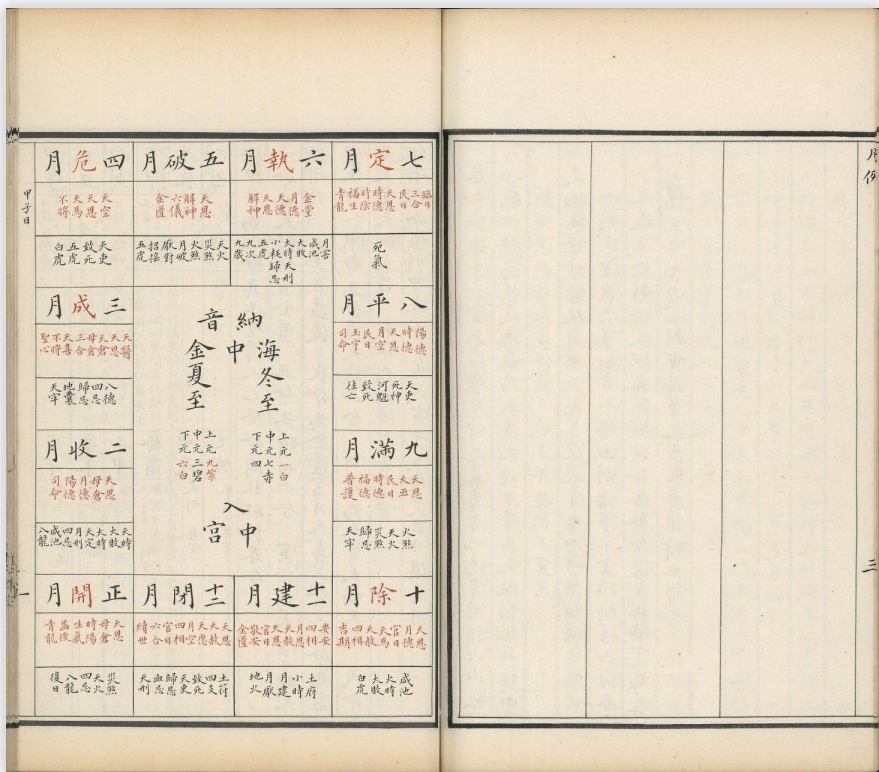 月例
三
七定月
臨日
三合
民日
天恩
時德
時陰
福生
青龍
死氣
六執月
金堂
月德
天德
天恩
解神
月害
咸池
大敗
大時天刑
小耗歸忌
五虎
五破月
天恩
解神
六儀
金匱
天火
災煞
火煞
月破
厭對
招搖
五虎
四危月
天空
天恩
天馬
不將
天吏
致死
五虎
白虎
八平月
陽德
時德
天恩
月空
民日
玉宇
司命
天吏
死神
河魁
致死
往亡
納音
海中金
冬至
上元一白
中元七赤
下元四
夏至
上元九紫
中元三碧
下元六白
入中宮
三成月
天醫
天恩
天倉
母倉
三合
天喜
不將
聖心
八德
四忌
歸忌
地囊
天牢
九滿月
天恩
天巫
民日
時德
福德
普護
火煞
天火
災煞
歸忌
天牢
二收月
天恩
母倉
月德
陽德
司命
天時
大敗
大時
天定
月刑
四忌
咸池
八龍
十除月
天恩
月德
官日
天馬
天赦
四相
吉期
咸池
大時
大敗
白虎
十一建月
四相
月恩
天赦
天恩
官日
敬安
金匱
土府
小時
月建
月厭
地火
十二閉月
天恩
天赦
天愿
月空
四相
官日
六合
續世
土符
致死
天吏
歸忌
血忌
天刑
正開月
天恩
母倉
時陽
生氣
益後
青龍
災煞
天火
四忌
八龍
復日
甲子日